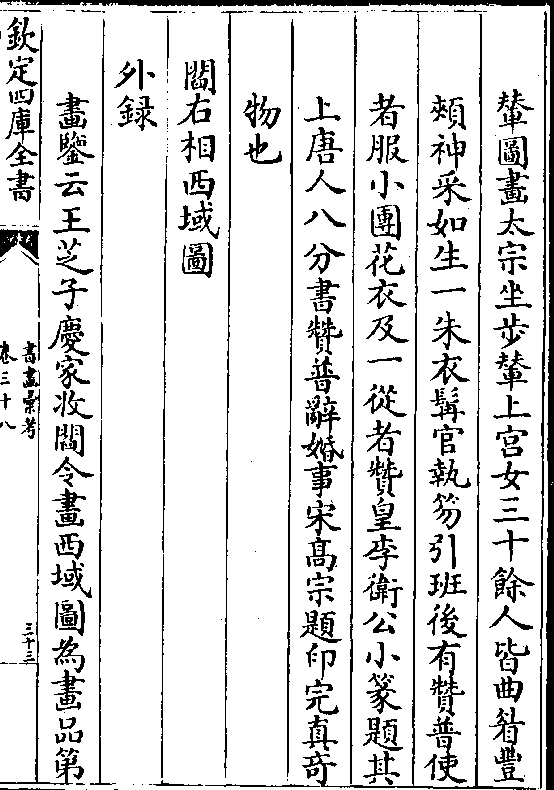 輦圖畫太宗坐步輦上宫女三十餘人皆曲眉豐
頰神采如生一朱衣髯官執笏引班後有贊普使
者服小團花衣及一從者贊皇李衛公小篆題其
上唐人八分書贊普辭婚事宋髙宗題印完真奇
物也
閻右相西域圖
外録
畫鑒云王芝子慶家收閻令畫西域圖為畫品第
欽定四庫全書
書畫彙考
卷三十八
三十三